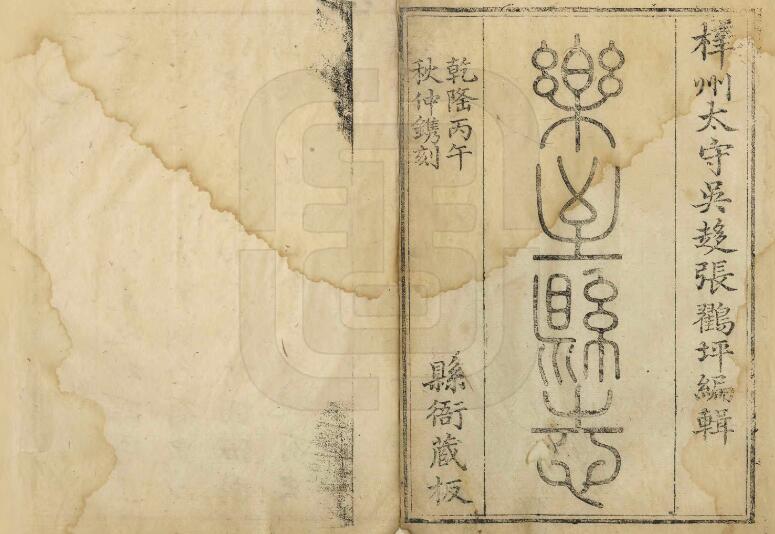 梓州太守吳趍張鸐坪編輯
樂至縣志
乾隆丙午
秋仲鐫刻
縣衙藏板